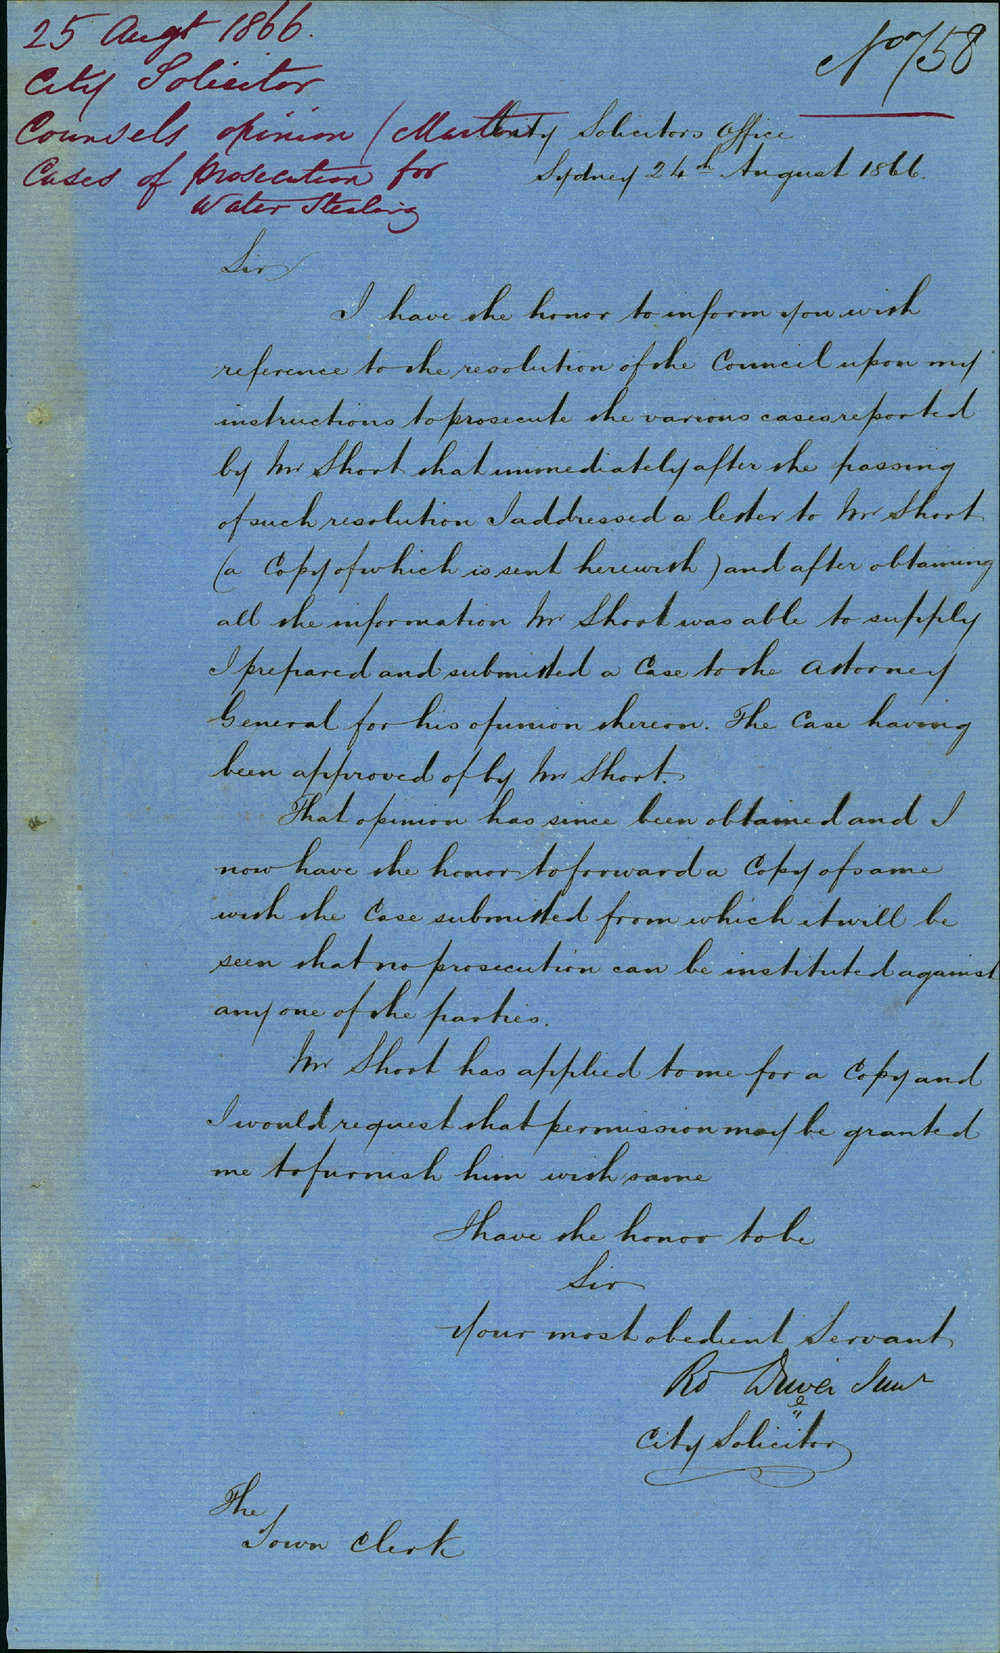 25 Augt 1866.
City Solicitor
Counsels opinion / Martin
Cases of prosecution for
Water Stealing
No 758
City Solicitors Office
Sydney 24th August 1866.
Sir
I have the honor to inform you with
reference to the resolution of the Council upon my
instructions to prosecute the various cases reported
by Mr Short that immediately after the passing
of such resolution I addressed a letter to Mr Short
(a Copy of which is sent herewith) and after obtaining
all the information Mr Short was able to supply
I prepared and submitted a Case to the Attorney
General for his opinion thereon. The Case having
been approved of by Mr Short.
That opinion has since been obtained and I
now have the honor to forward a Copy of same
with the Case submitted from which it will be
seen that no prosecution can be instituted against
any one of the parties.
Mr Short has applied to me for a Copy and
I would request that permission may be granted
me to furnish him with same
I have the honor to be
Sir
Your most obedient Servant
Rd Driver Junr
City Solicitor
The
Town Clerk